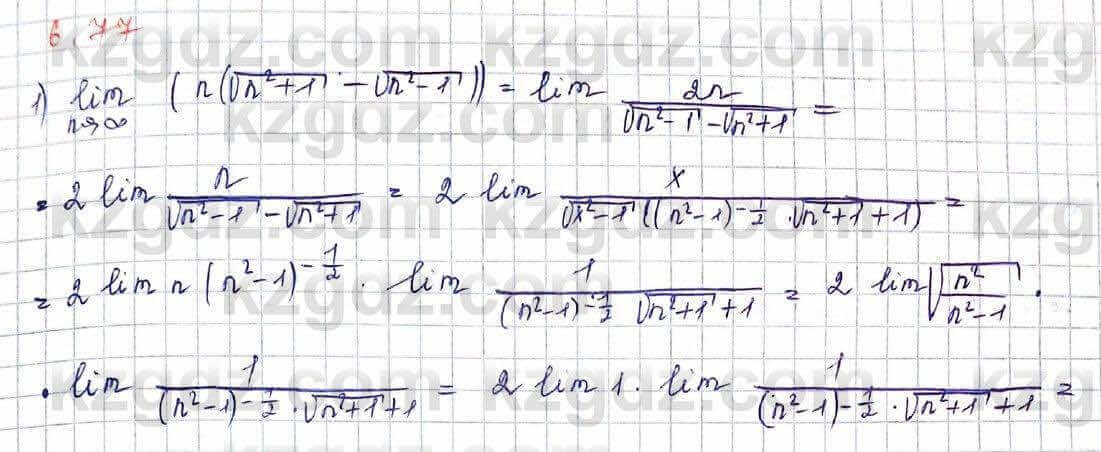 6.77
1) lim n→∞ (n(√n²+1 - √n²-1)) = lim 2n / √n²-1 - √n²+1 =
= 2 lim n / √n²-1 - √n²+1 = 2 lim x / √x²-1 ((n²-1)^-1/2 · √n²+1 + 1) =
= 2 lim n (n²-1)^-1/2 · lim 1 / (n²-1)^-1/2 √n²+1 + 1 = 2 lim √n²/n²-1 ·
· lim 1 / (n²-1)^-1/2 · √n²+1 + 1 = 2 lim 1 · lim 1 / (n²-1)^-1/2 · √n²+1 + 1 =
kzgdz.com